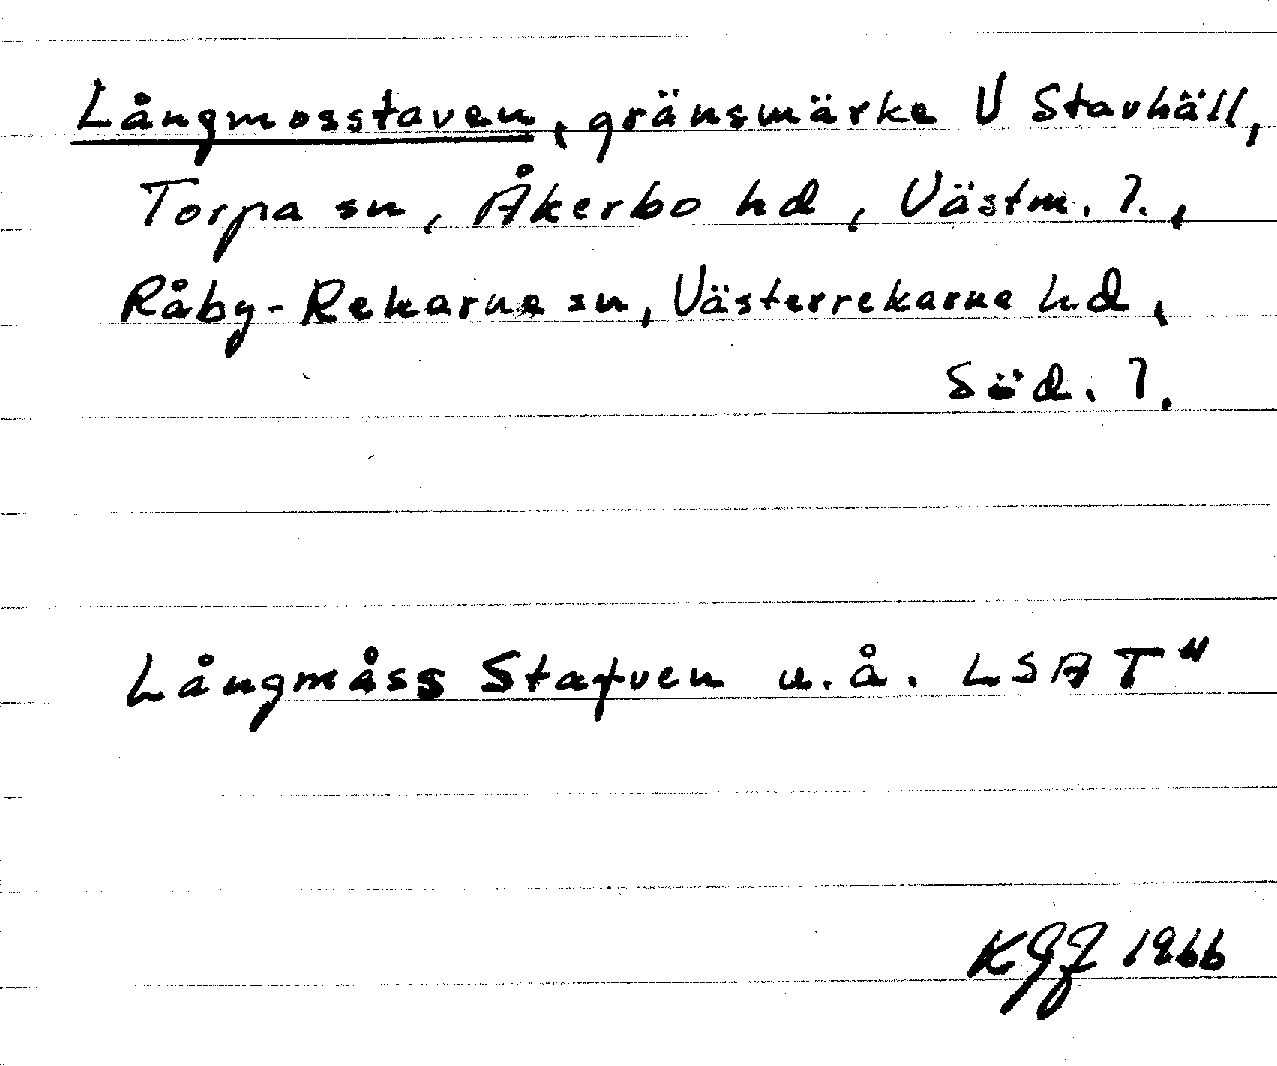 Långmosstaven, gränsmärke V Stavhäll,
Torpa sn, Åkerbo hd, Västm. l.,
Råby-Rekarne sn, Västerrekarne hd,
Söd. l.
Långmåss Stafven u.å. LSA T"
KGF 1966